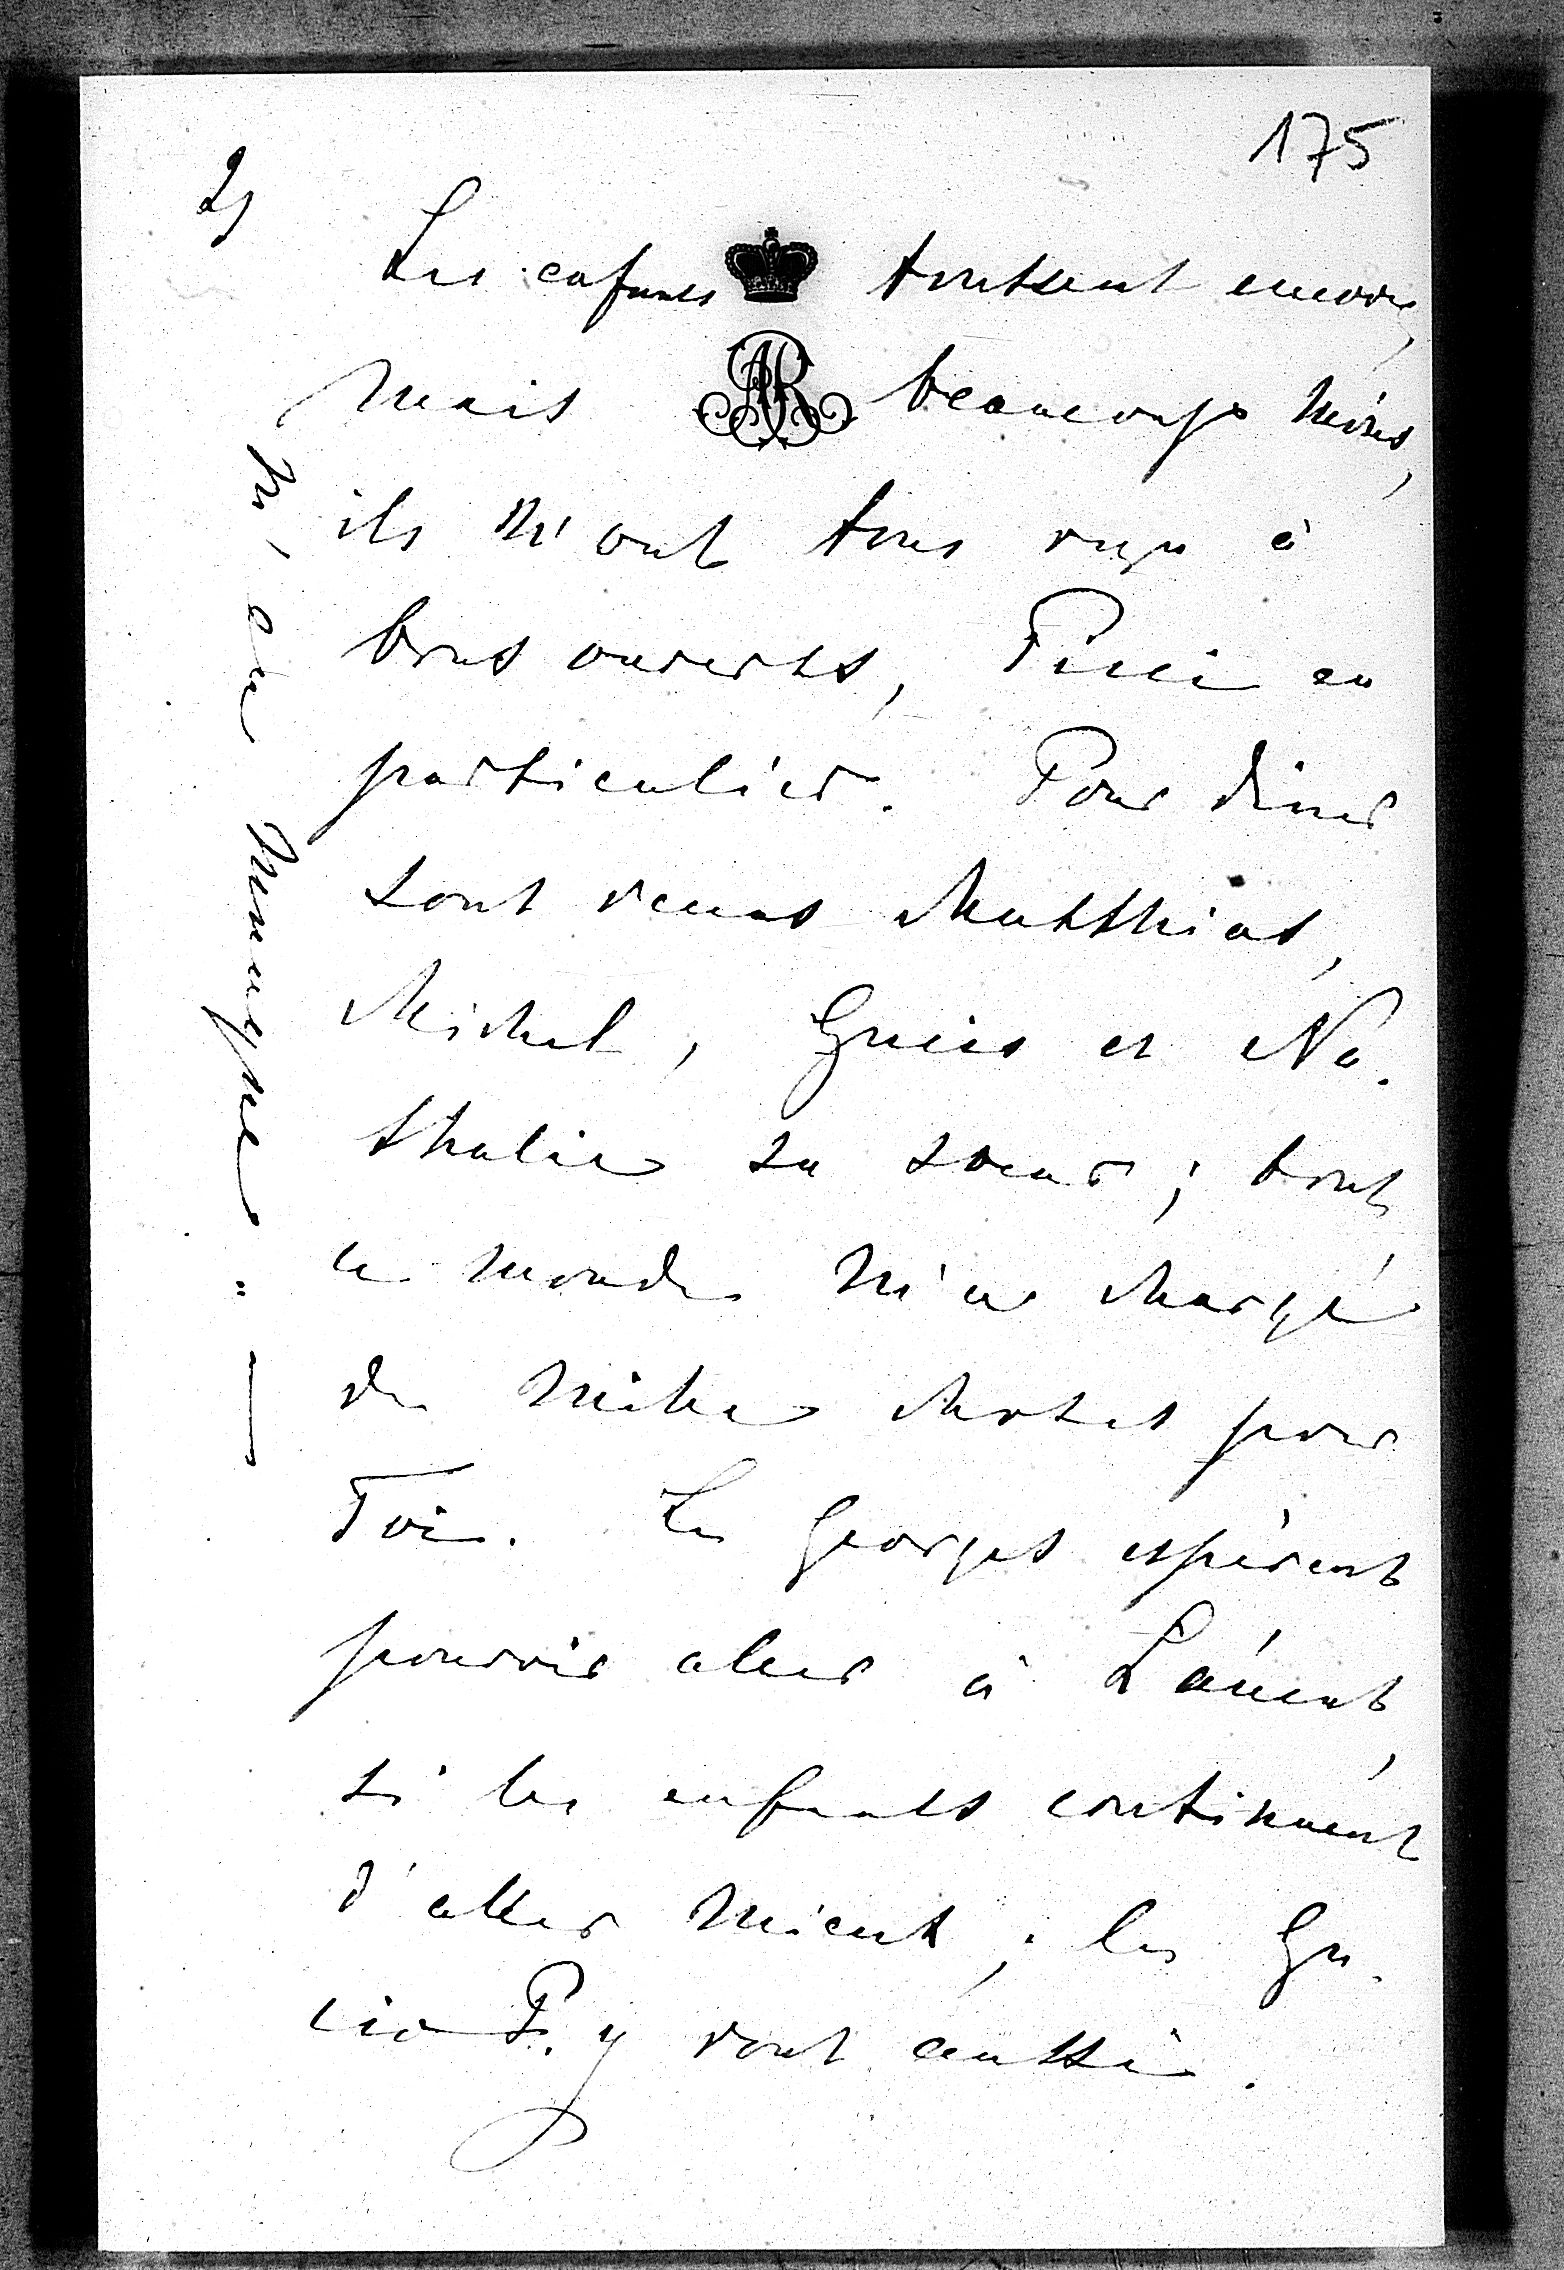 175
2)
Les enfants toussent encore,
mais beaucoup moins,
ils m'ont tous reçu à
bras ouverts, en
particulier. Pour diner
sont venus Matthias,
Michel, Gucia et Na-
thalie sa soeur; tout
le monde m'a chargé
de mille choses pour
Toi. Les Georges espèrent
pouvoir aller à Łańcut,
si les enfants continuent
d'aller mieux; les Gu-
cio P. y vont aussi.